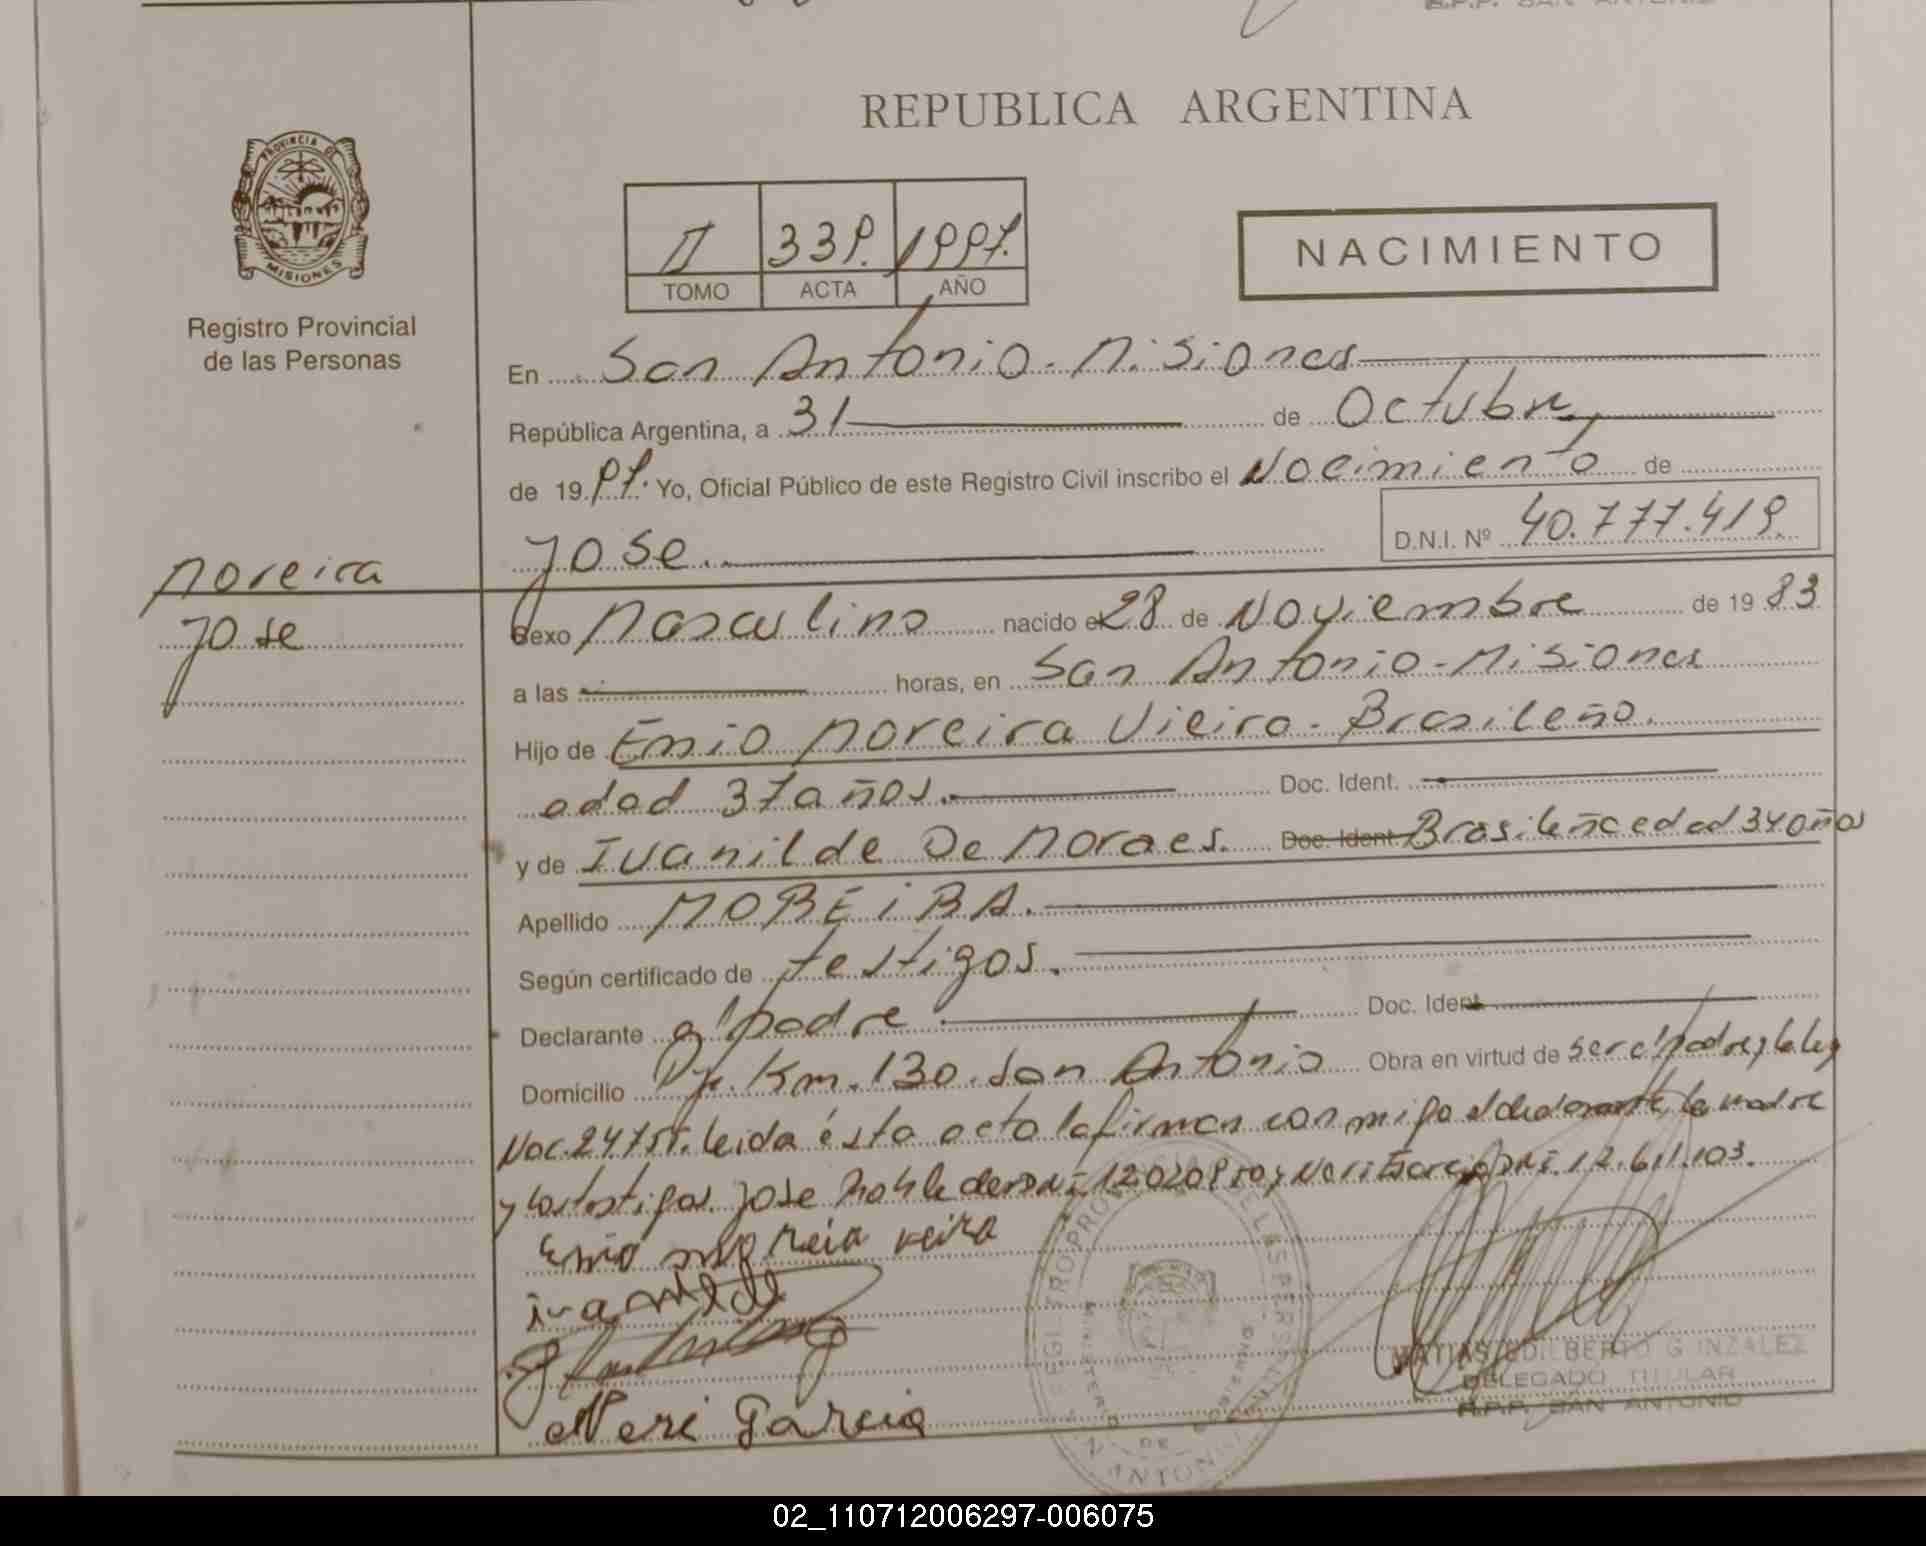 REPUBLICA ARGENTINA
PROVINCIA DE
MISIONES
Registro Provincial
de las Personas
II 339. 1997.
TOMO ACTA AÑO
NACIMIENTO
En San Antonio - Misiones
República Argentina, a 31 de Octubre
de 1997. Yo, Oficial Público de este Registro Civil inscribo el Nacimiento de
Jose. D.N.I. Nº 40.777.419.
Moreira
Jose
Sexo Masculino nacido el 28 de Noviembre de 1983
a las horas, en San Antonio - Misiones
Hijo de Enio Moreira Vieira - Brasileño.
edad 37 años. Doc. Ident.
y de Ivanilde De Moraes. Doc. Ident. Brasileña edad 34 años
Apellido MOREIRA.
Según certificado de testigos.
Declarante el padre Doc. Ident.
Domicilio Pje. Km. 130. San Antonio Obra en virtud de ser el padre y la ley
Nac. 24755. leida ésta acta la firman conmigo el declarante, la madre
y los testigos Jose DNI 12.611.103.
Enio moreia veira
ivanilde
Neri Garcia
MATIAS EDILBERTO GONZALEZ
DELEGADO TITULAR
R.P.P. SAN ANTONIO
02_110712006297-006075